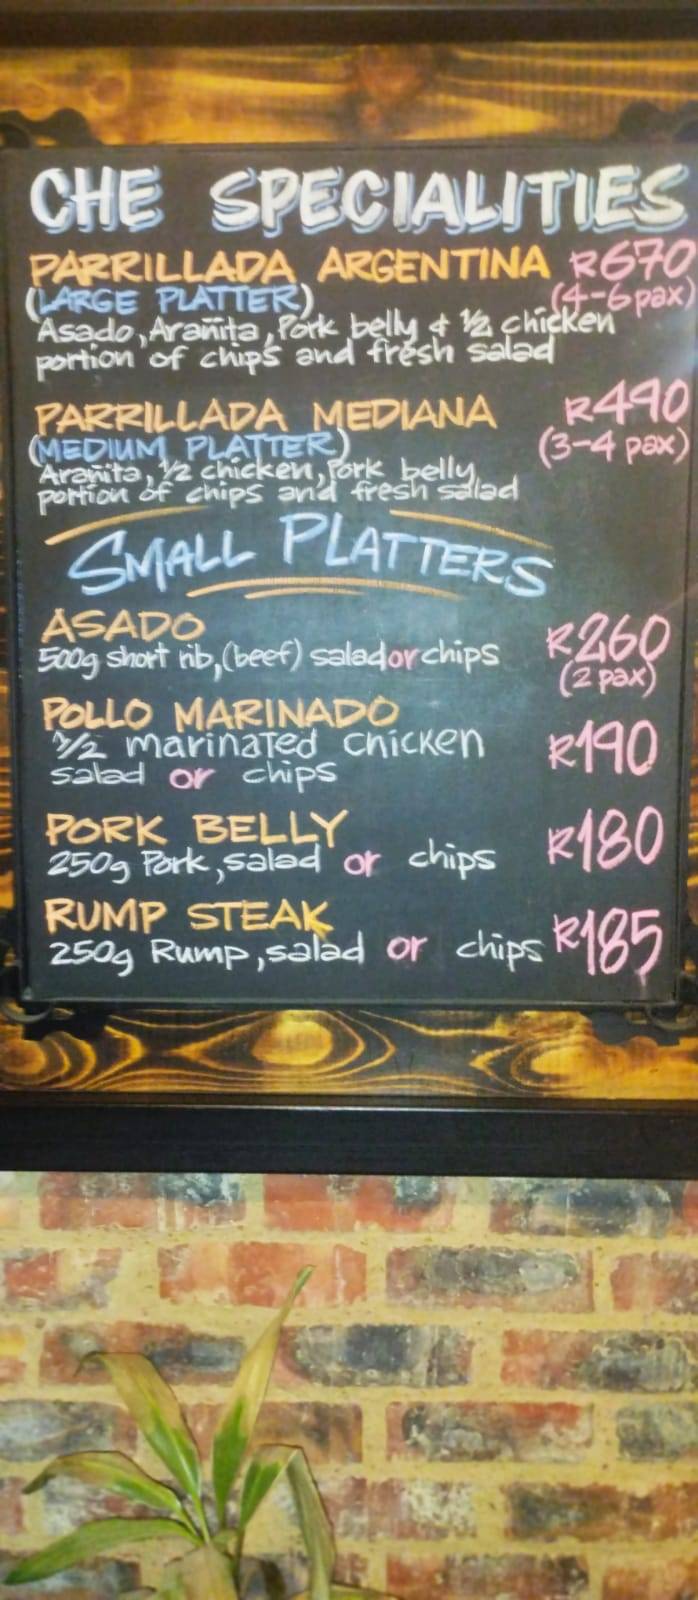 CHE SPECIALITIES
PARRILLADA ARGENTINA R670
(LARGE PLATTER) (4-6 pax)
Asado, Arañita, Pork belly & 1/2 chicken
portion of chips and fresh salad
PARRILLADA MEDIANA R490
(MEDIUM PLATTER) (3-4 pax)
Arañita, 1/2 chicken, Pork belly,
portion of chips and fresh salad
SMALL PLATTERS
ASADO R260
500g short rib, (beef) salad or chips (2 pax)
POLLO MARINADO
1/2 marinated chicken R190
salad or chips
PORK BELLY R180
250g Pork, salad or chips
RUMP STEAK R185
250g Rump, salad or chips